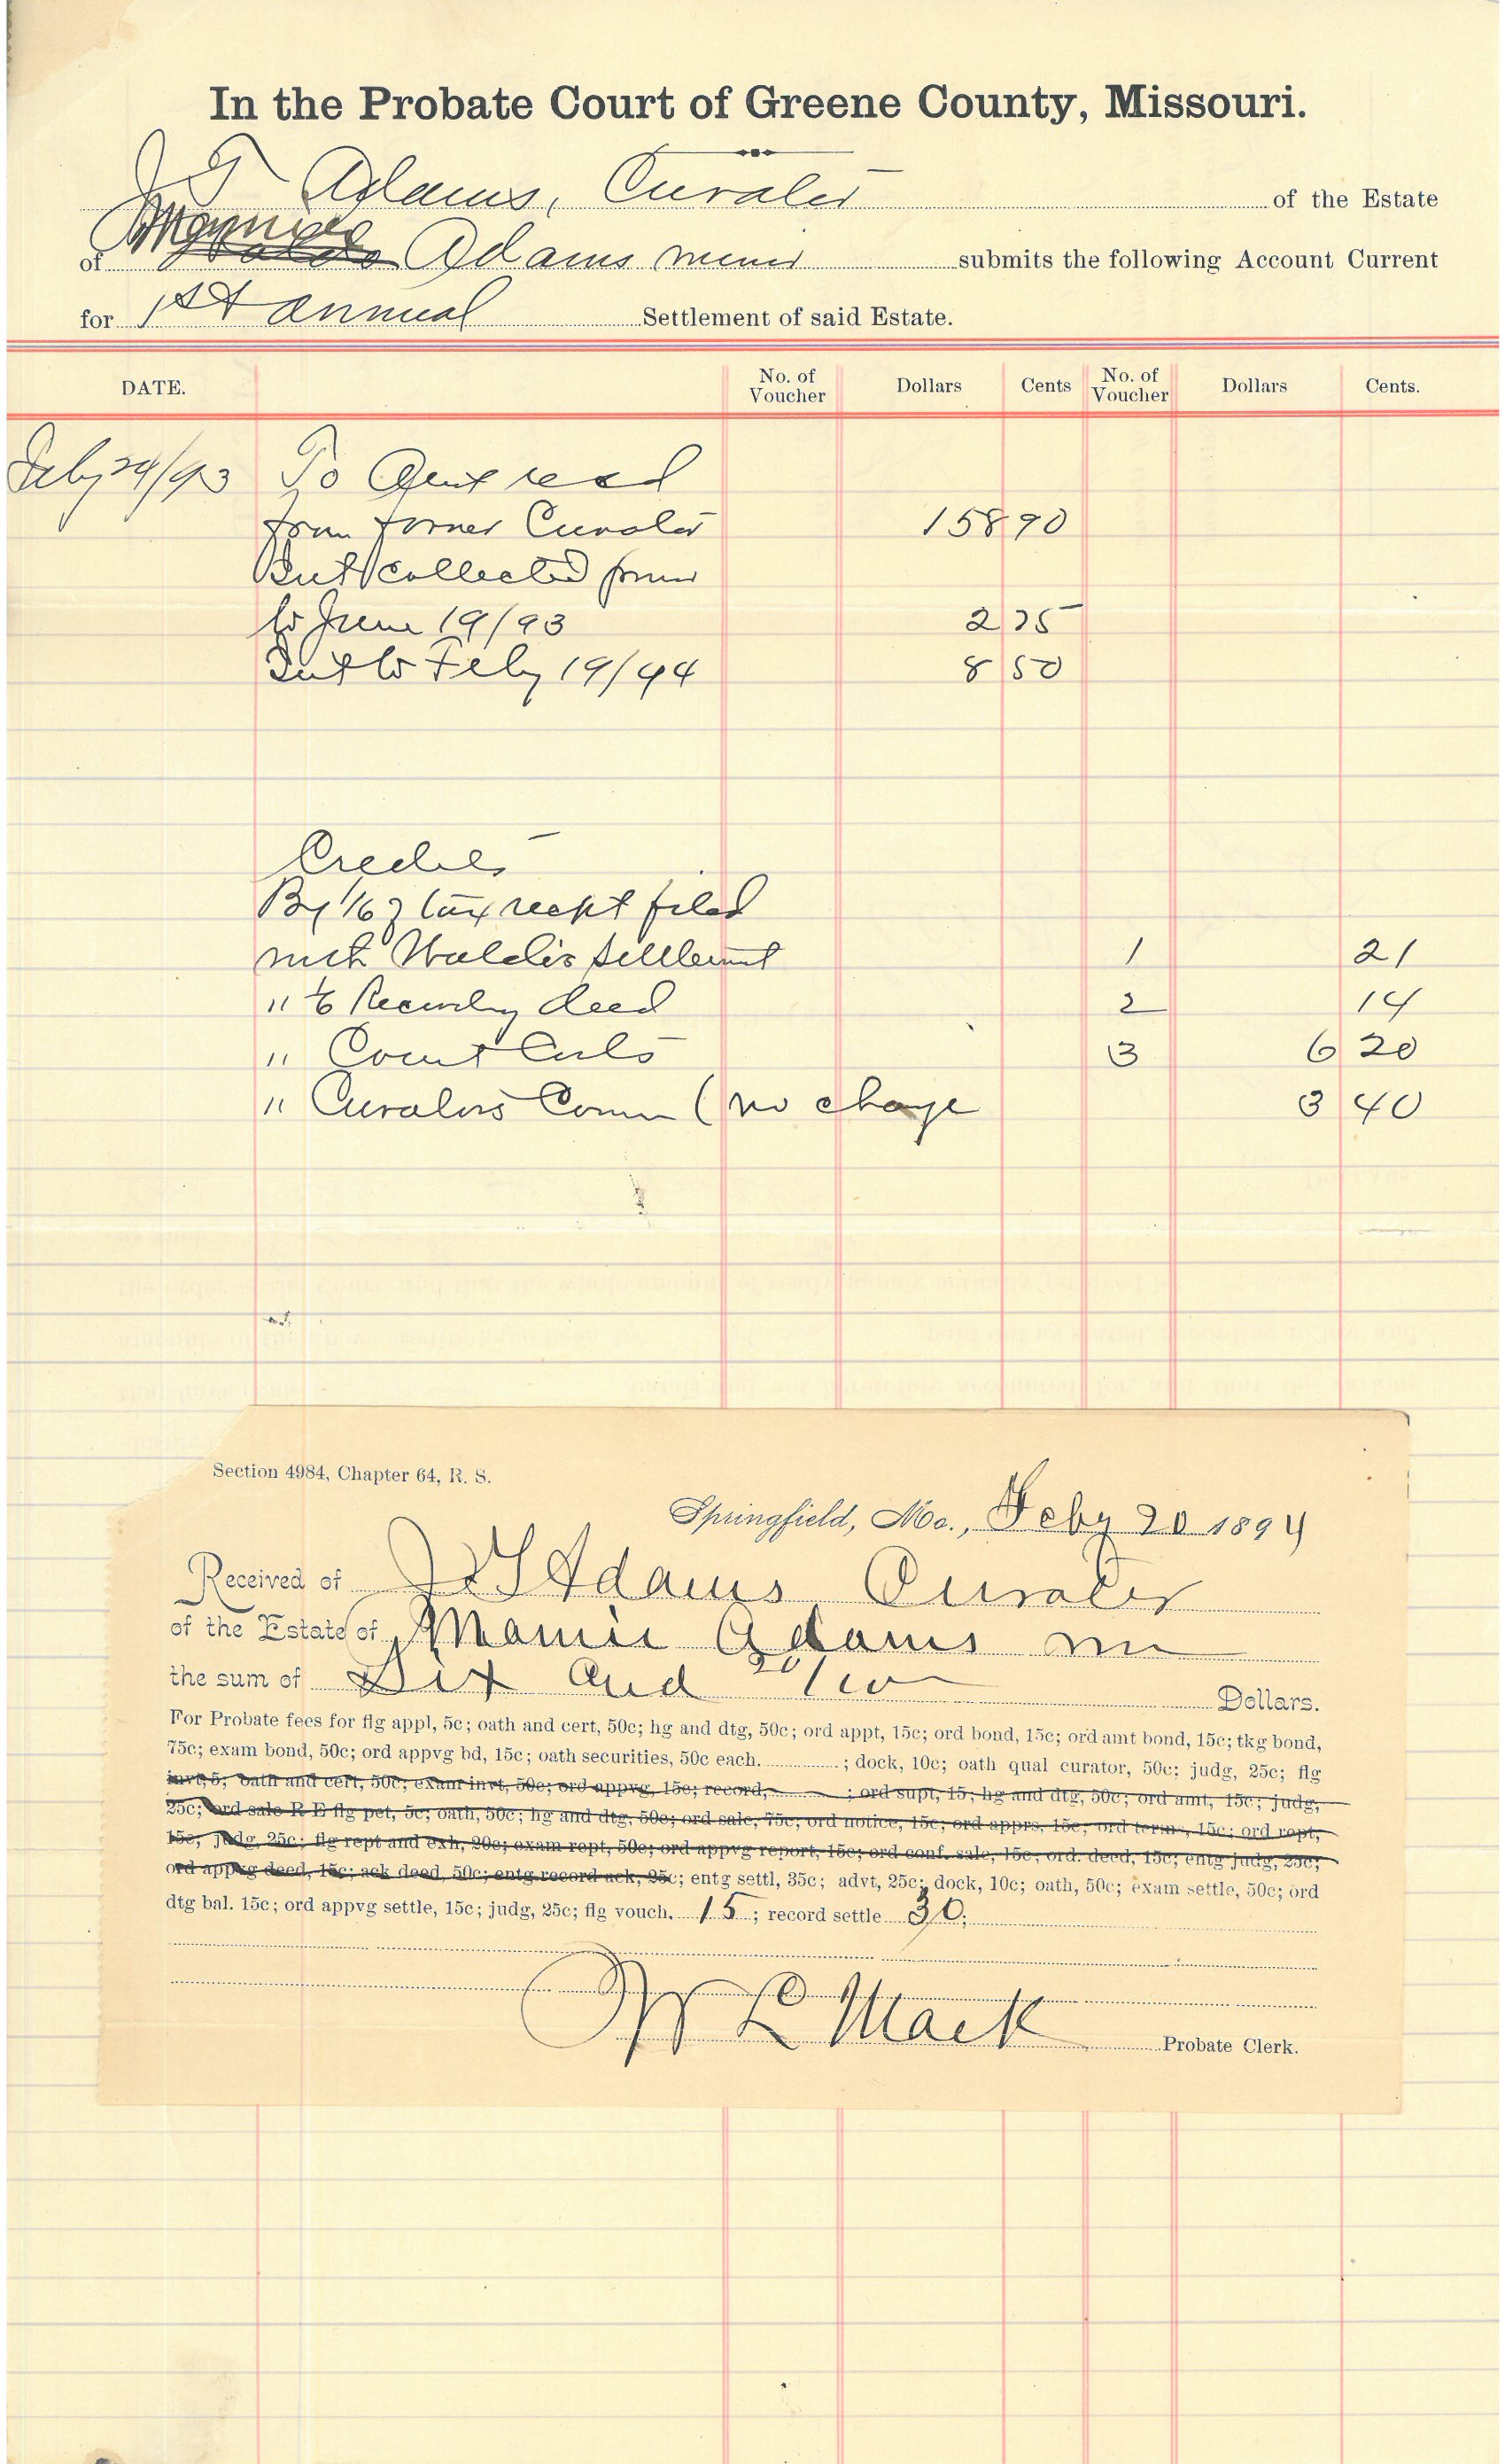 In the Probate Court of Greene County, Missouri.
J T Adams, Curator of the Estate
of Mamie Adams minor submits the following Account Current
for 1st annual Settlement of said Estate.
DATE. No. of Voucher Dollars Cents No. of Voucher Dollars Cents.
Feby 24/93 To Amt recd
from former Curator 158 90
Int collected from
to June 19/93 2 75
Int to Feby 19/94 8 50
Credits
By 1/6 of tax recpt filed
with Waldo's settlement 1 21
" 1/6 Recording deed 2 14
" Court Costs 3 6 20
" Curators Comm (no charge 3 40
Section 4984, Chapter 64, R. S.
Springfield, Mo., Feby 20 1894
Received of J T Adams Curator
of the Estate of Mamie Adams mi
the sum of Six and 20/100 Dollars.
For Probate fees for flg appl, 5c; oath and cert, 50c; hg and dtg, 50c; ord appt, 15c; ord bond, 15c; ord amt bond, 15c; tkg bond,
75c; exam bond, 50c; ord appvg bd, 15c; oath securities, 50c each. ; dock, 10c; oath qual curator, 50c; judg, 25c; flg
invt, 5; oath and cert, 50c; exam invt, 50c; ord appvg, 15c; record, ; ord supt, 15; hg and dtg, 50c; ord amt, 15c; judg,
25c; ord sale R E flg pet, 5c; oath, 50c; hg and dtg, 50c; ord sale, 75c; ord notice, 15c; ord apprs, 15c; ord terms, 15c; ord rept,
15c; judg, 25c; flg rept and exh, 20c; exam rept, 50c; ord appvg report, 15c; ord conf. sale, 15c; ord. deed, 15c; entg judg, 25c;
ord appvg deed, 15c; ack deed, 50c; entg record ack, 25c; entg settl, 35c; advt, 25c; dock, 10c; oath, 50c; exam settle, 50c; ord
dtg bal. 15c; ord appvg settle, 15c; judg, 25c; flg vouch. 15; record settle 30;
W L Mack Probate Clerk.